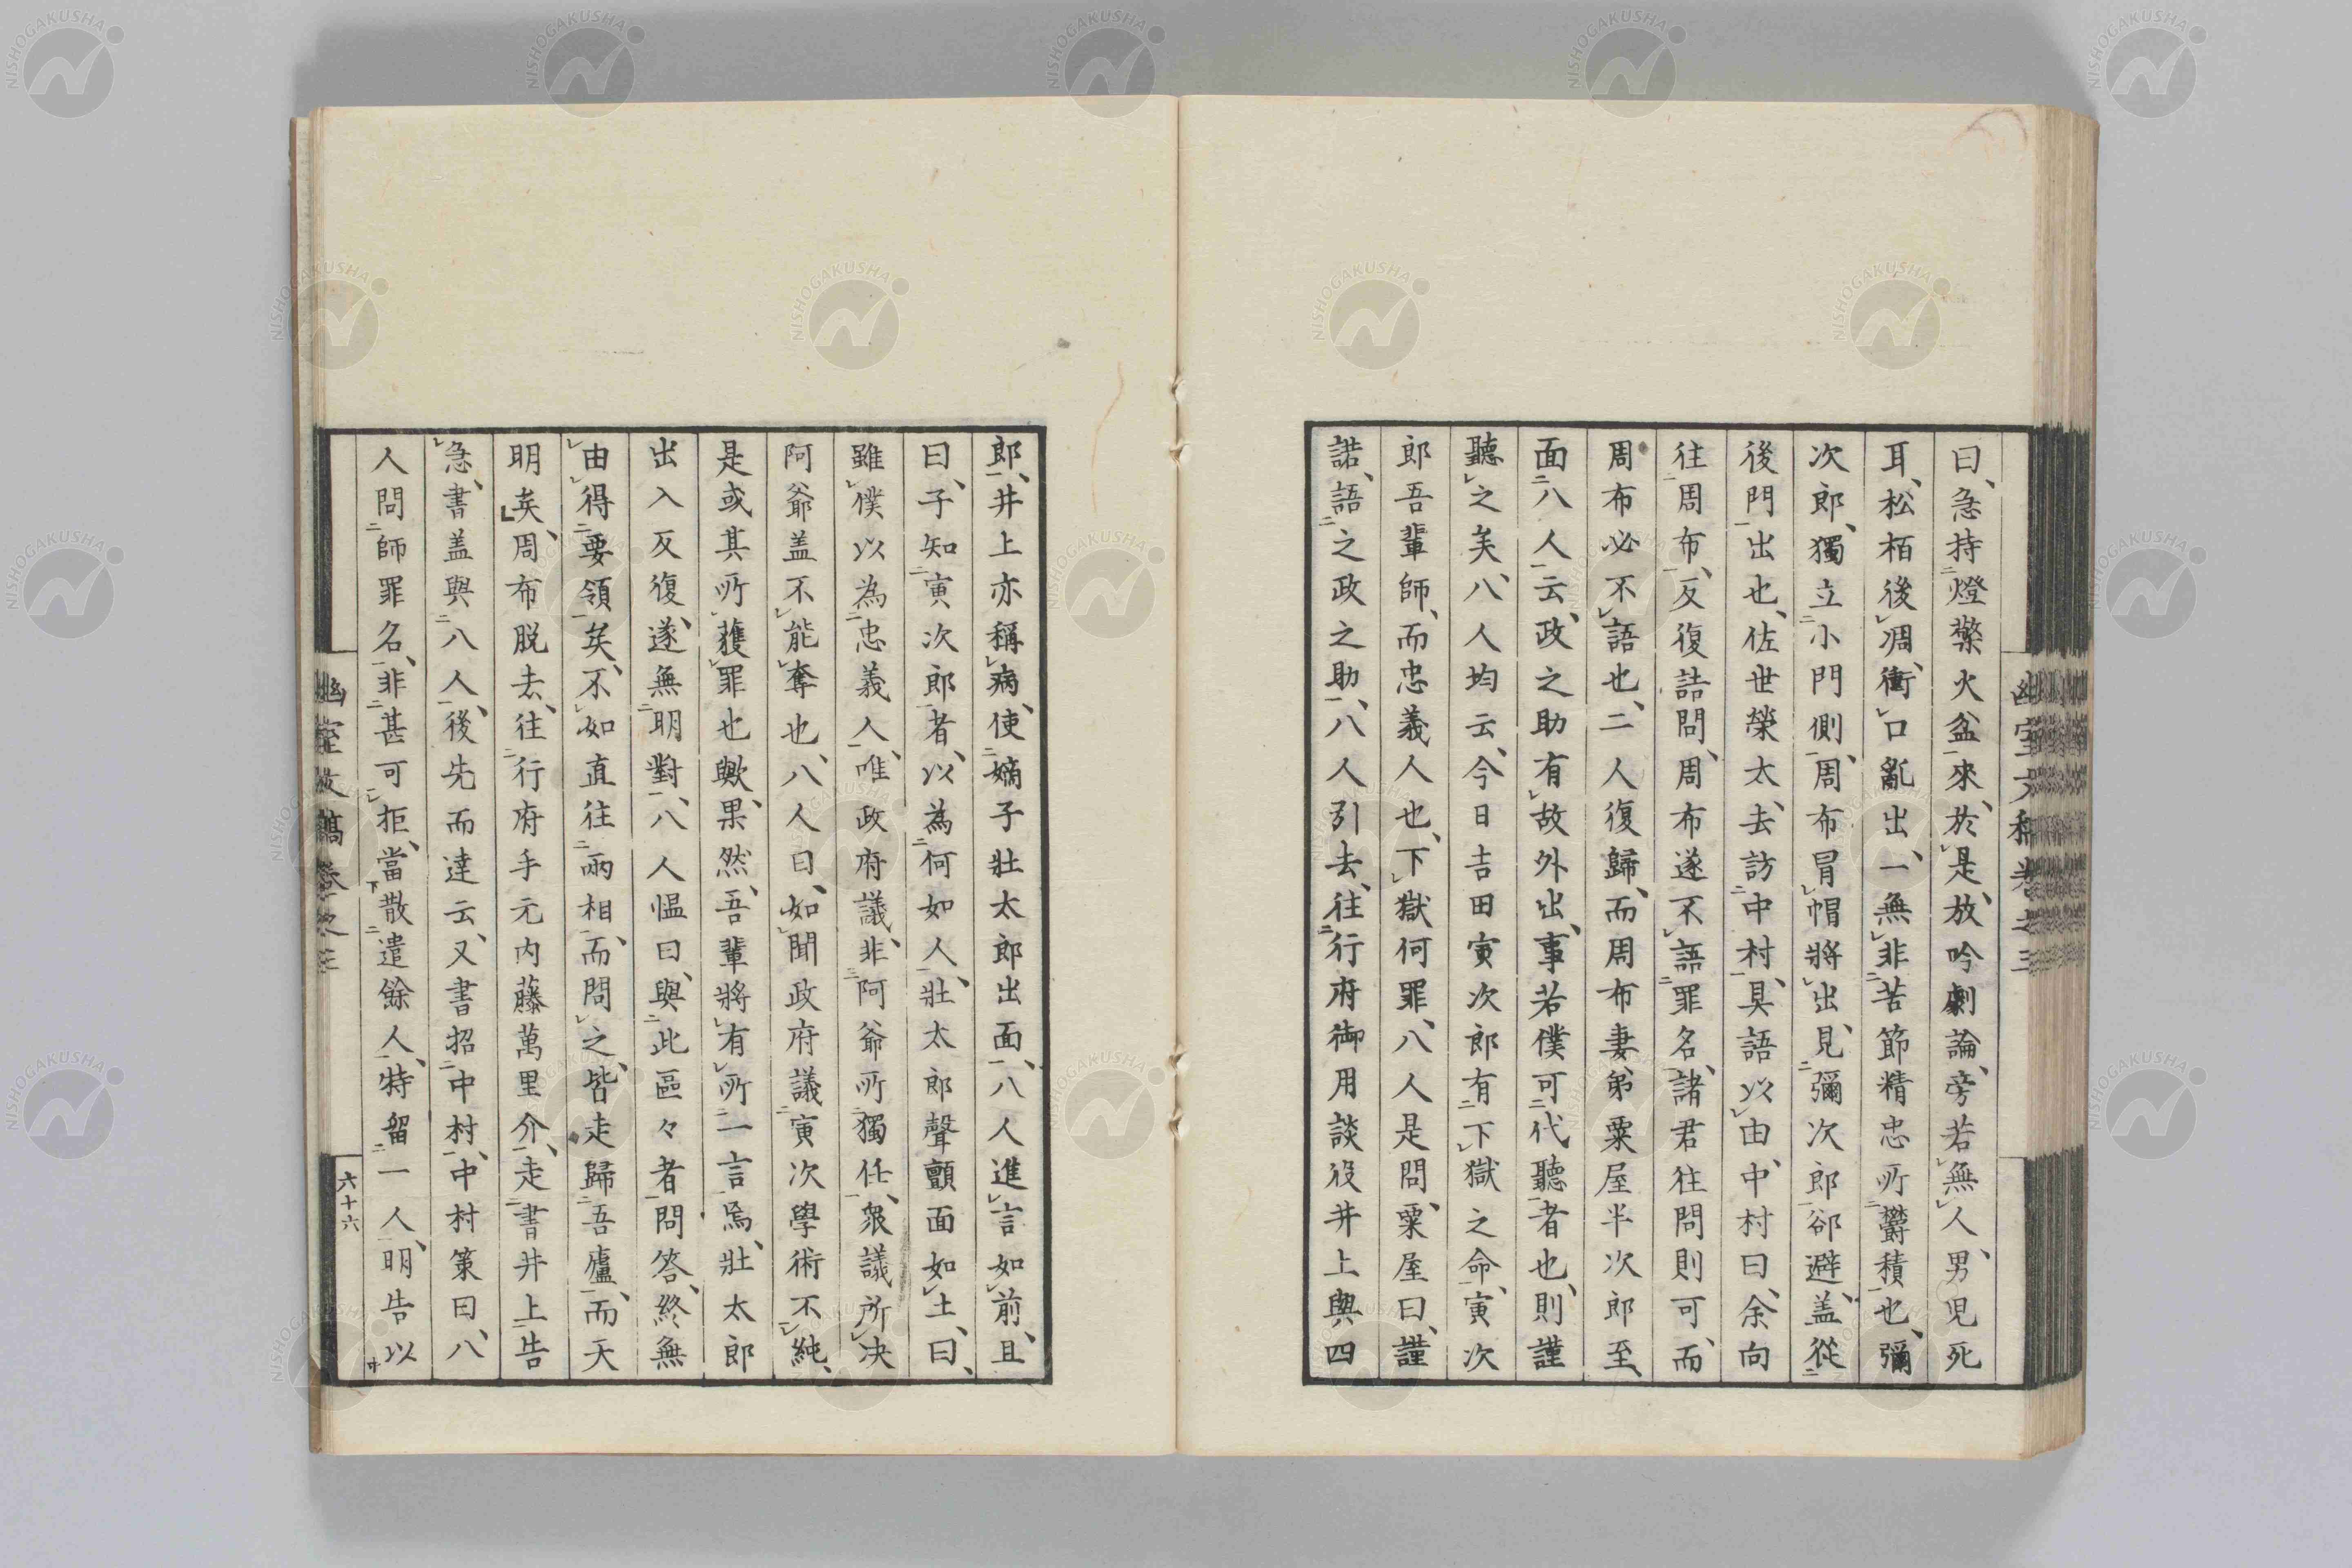 曰、急持燈檠火盆來、於是、放吟劇論、旁若無人、男児死
耳、松栢後凋、衝口亂出、一無非苦節精忠所欝積也、彌
次郎、獨立小門側、周布冒帽將出見、彌次郎郤避、盖從
後門出也、佐世榮太、去訪中村、具語以由、中村曰、余向
往周布、反復詰問、周布遂不語罪名、諸君往問則可、而
周布必不語也、二人復歸、而周布妻弟粟屋半次郎至、
面八人云、政之助有故外出、事若僕可代聽者也、則謹
聽之矣、八人均云、今日吉田寅次郎有下獄之命、寅次
郎吾輩師、而忠義人也、下獄何罪、八人是問、粟屋曰、謹
諾、語之政之助、八人引去、往行府御用談役井上與四
郎、井上亦稱病、使嫡子壯太郎出面、八人進言如前、且
曰、子知寅次郎者、以為何如人、壯太郎聲顫面如土、曰、
雖僕以為忠義人、唯政府議、非阿爺所獨任、衆議所决
阿爺盖不能奪也、八人曰、如聞政府議寅次學術不純、
是或其所獲罪也歟、果然、吾輩將有所一言焉、壯太郎
出入反復、遂無明對、八人愠曰、與此區々者問答、終無
由得要領矣、不如直往兩相、而問之、皆走歸吾廬、而天
明矣、周布脱去、往行府手元内藤萬里介、走書井上告
急、書盖與八人、後先而達云、又書招中村、中村策曰、八
人問師罪名、非甚可拒、當散遣餘人、特畱一人、明告以
幽室文稿卷之三
六十六